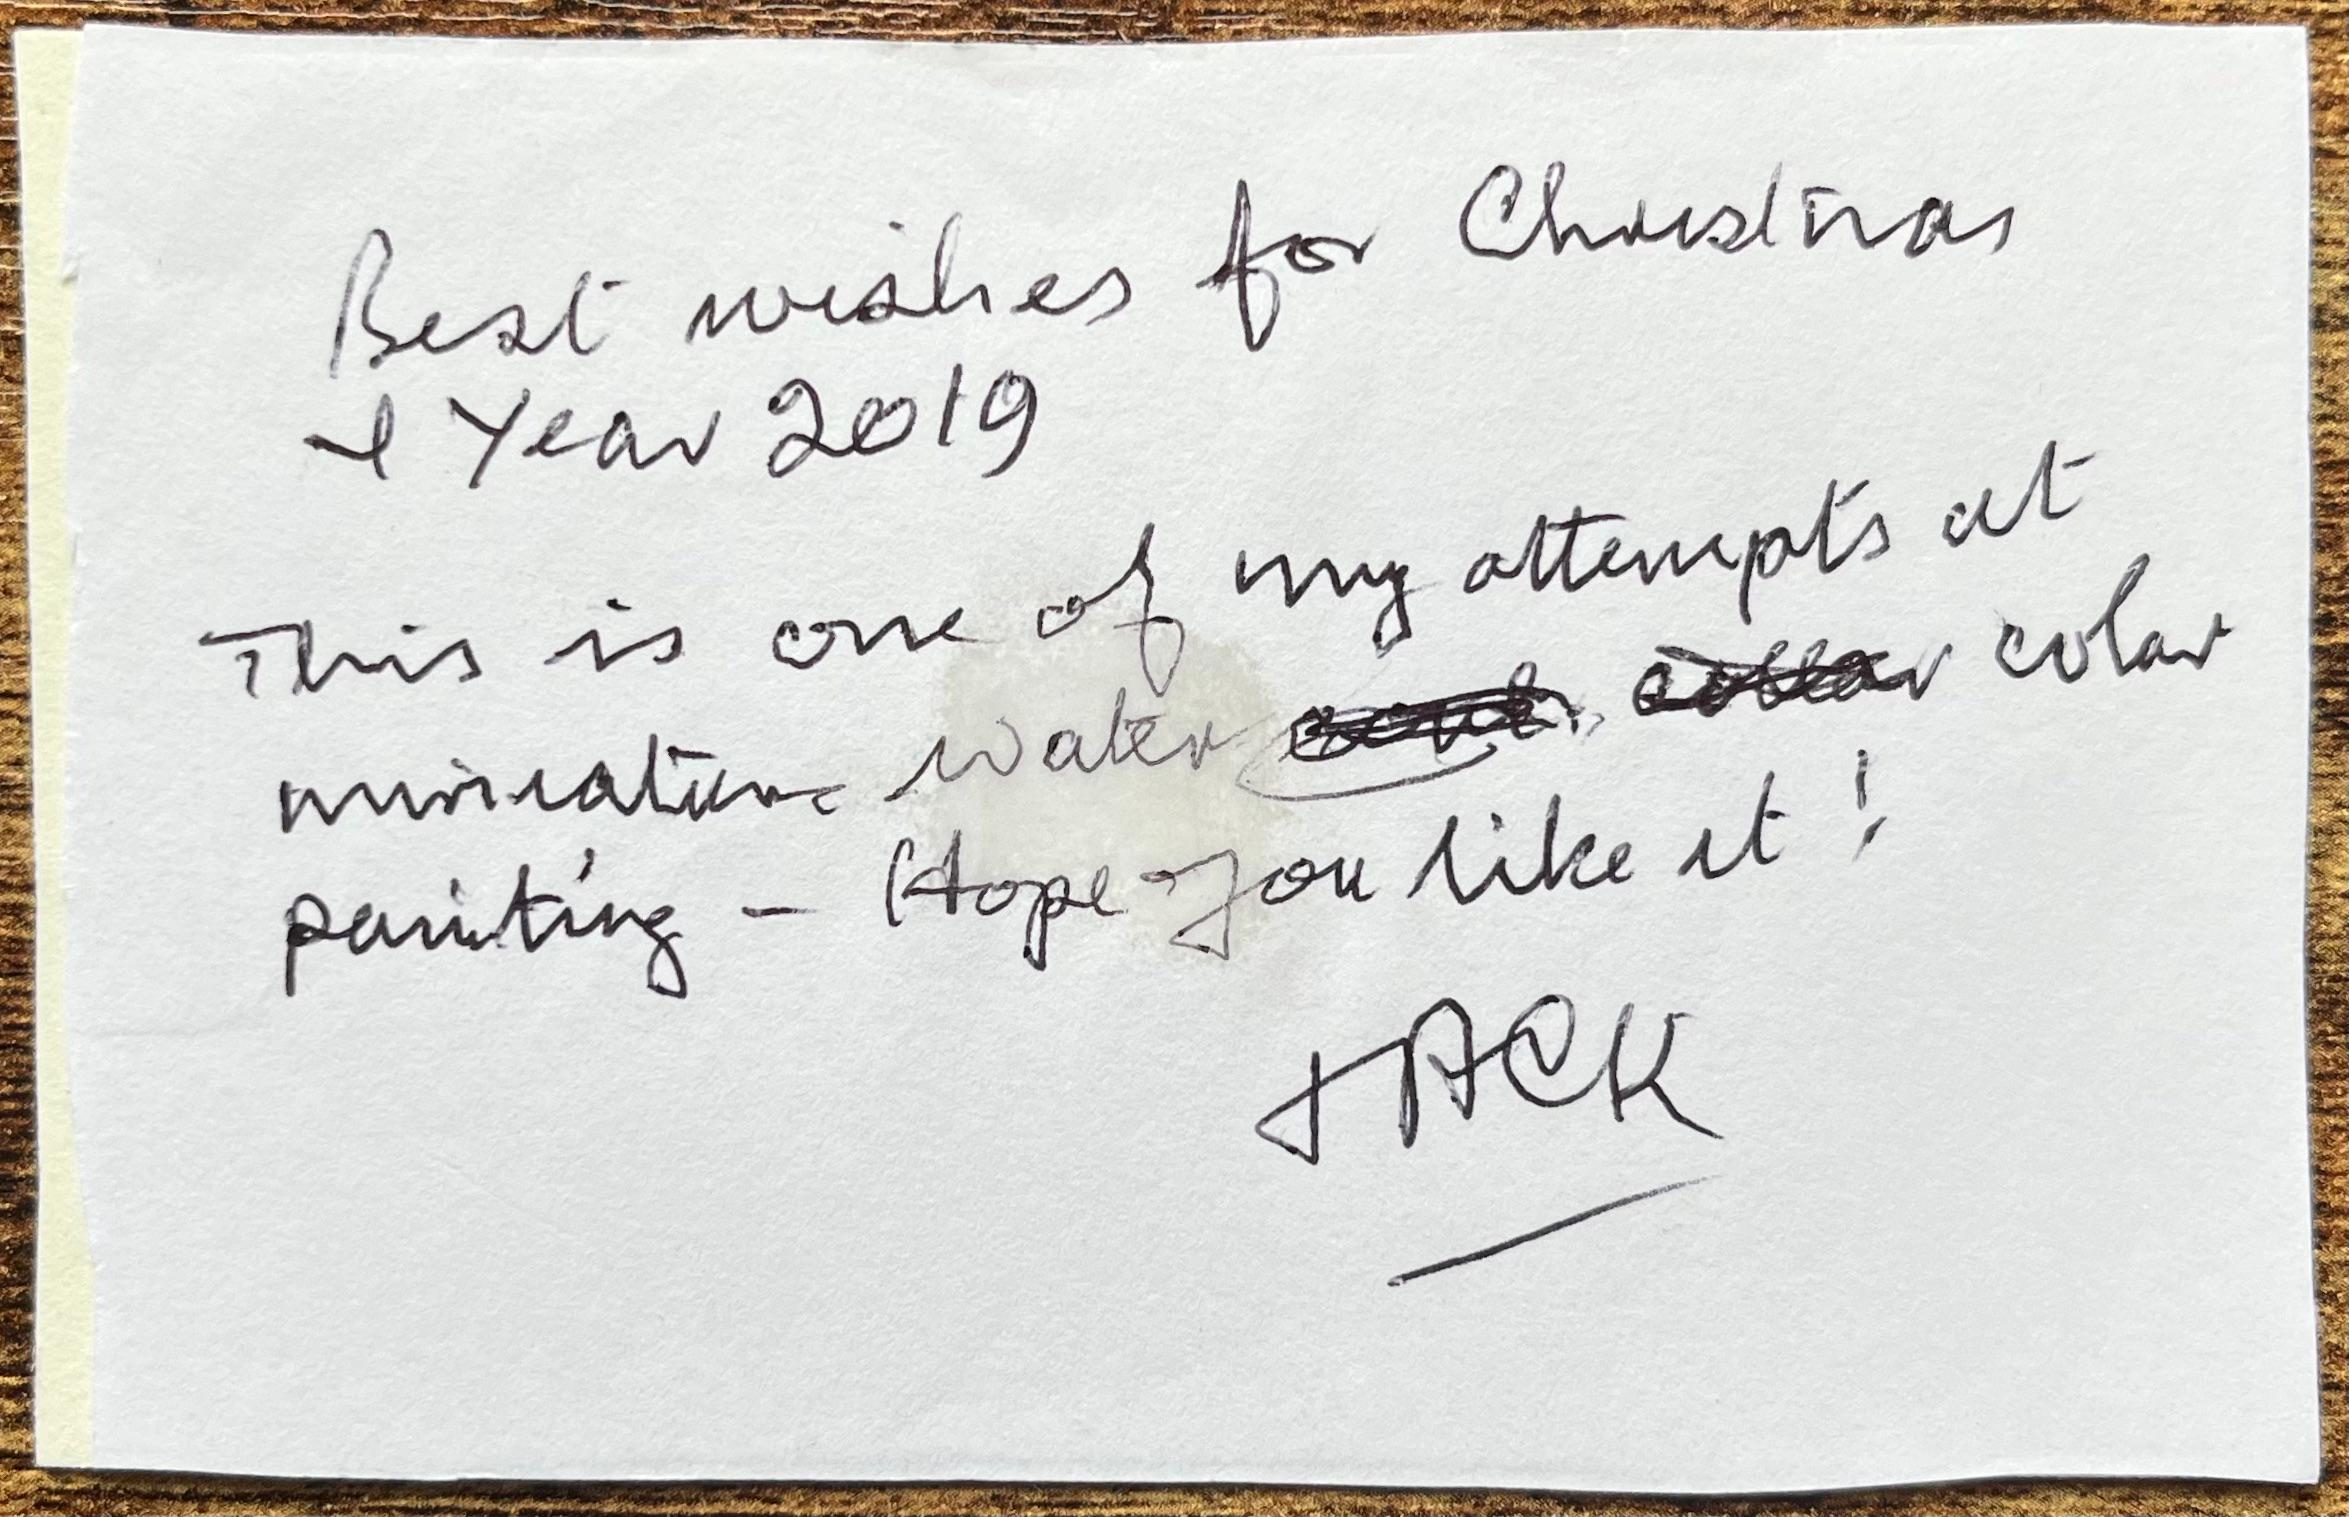 Best wishes for Christmas
& Year 2019
This is one of my attempts at
miniature water color
painting – Hope you like it!
JACK